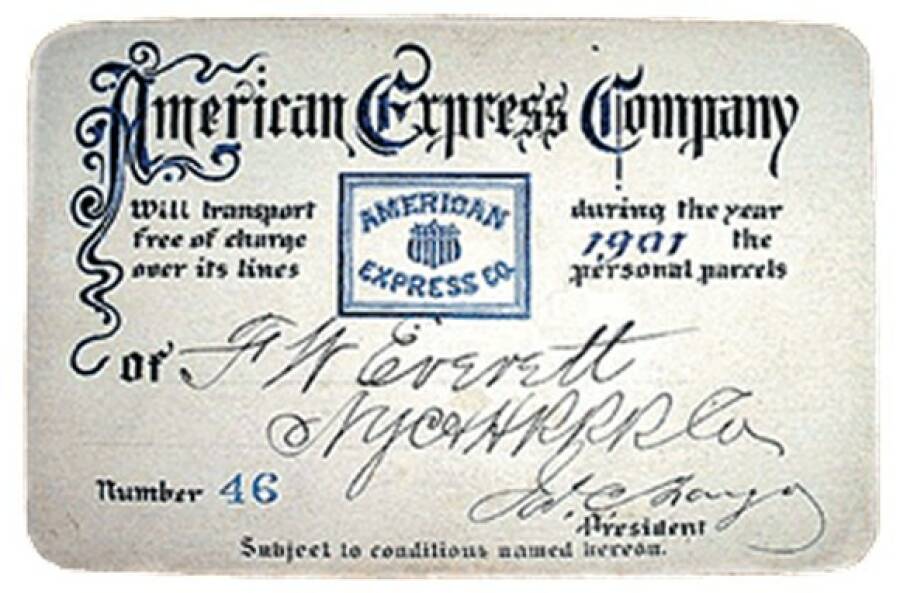 American Express Company
Will transport
free of charge
over its lines
AMERICAN
EXPRESS CO.
during the year
1901 the
personal parcels
of F W Everett
NYC&HRRR Co
Number 46
President
Subject to conditions named hereon.